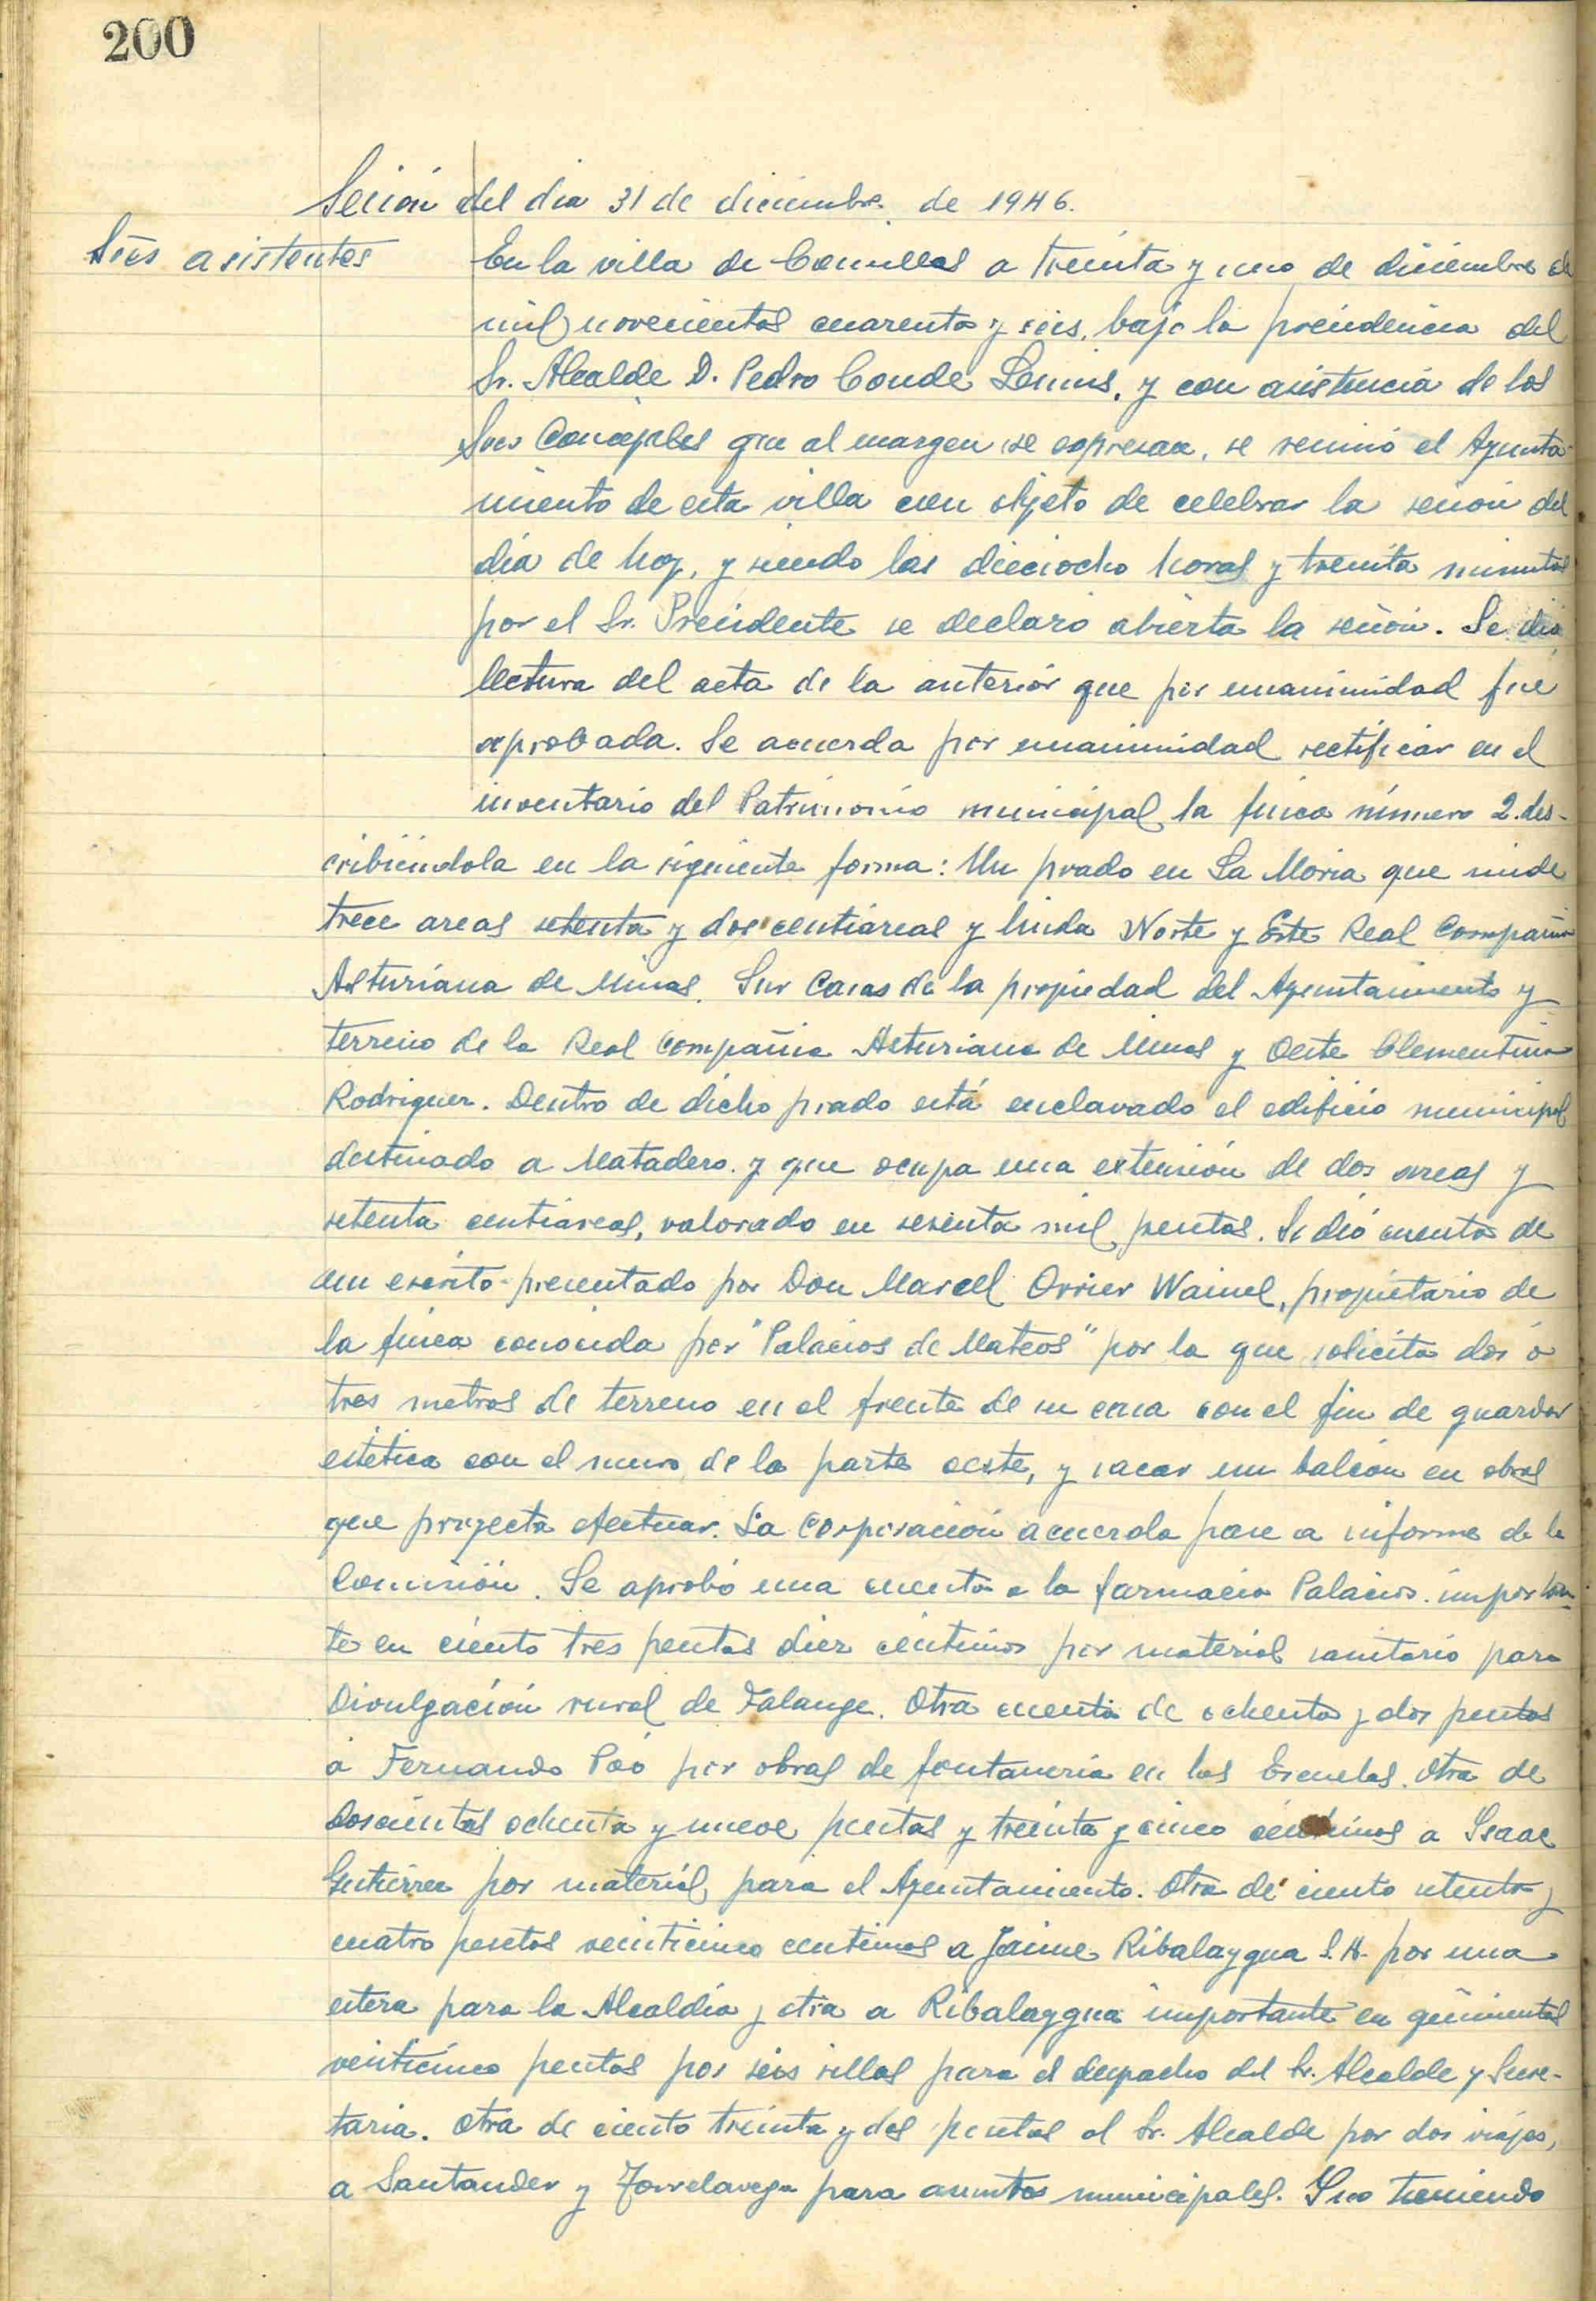 200
Sesión del dia 31 de diciembre de 1946.
Sres asistentes
En la villa de Comillas a treinta y uno de diciembre de
mil novecientos cuarenta y seis, bajo la presidencia del
Sr. Alcalde D. Pedro Conde y con asistencia de los
Sres Concejales que al margen se expresan, se reunió el Ayunta-
miento de esta villa con objeto de celebrar la sesión del
día de hoy, y siendo las dieciocho horas y treinta minutos
por el Sr. Presidente se declaró abierta la sesión. Se dio
lectura del acta de la anterior que por unanimidad fue
aprobada. Se acuerda por unanimidad rectificar en el
inventario del Patrimonio municipal la finca número 2. des-
cribiéndola en la siguiente forma: Un prado en La Moria que mide
trece areas setenta y dos centiáreas y linda Norte y Este Real Compañia
Asturiana de Minas. Sur Casas de la propiedad del Ayuntamiento y
terreno de la Real Compañia Asturiana de Minas y Oeste Clementina
Rodriguez. Dentro de dicho prado está enclavado el edificio municipal
destinado a Matadero. y que ocupa una extensión de dos areas y
setenta centiáreas, valorado en sesenta mil pesetas. Se dió cuenta de
un escrito presentado por Don Marcel Orrier Wainel, propietario de
la finca conocida por "Palacios de Mateos" por la que solicita dos o
tres metros de terreno en el frente de su casa con el fin de guardar
estética con el muro de la parte oeste, y sacar un balcón en obras
que proyecta efectuar. La Corporación acuerda pase a informe de la
Comisión. Se aprobó una cuenta a la farmacia Palacios. importan-
te en ciento tres pesetas diez céntimos por material sanitario para
Divulgación rural de Falange. Otra cuenta de ochenta y dos pesetas
a Fernando Poo por obras de fontaneria en las Escuelas. Otra de
Doscientas ochenta y nueve pesetas y treinta y cinco céntimos a Isaac
Gutiérrez por material para el Ayuntamiento. Otra de ciento setenta y
cuatro pesetas veinticinco centimos a Jaime Ribalaygua S.A. por una
estera para la Alcaldía y otra a Ribalaygua importante en quinientas
veinticinco pesetas por seis sillas para el despacho del Sr. Alcalde y Secre-
taria. Otra de ciento treinta y dos pesetas al Sr. Alcalde por dos viajes,
a Santander y Torrelavega para asuntos municipales. Y no teniendo